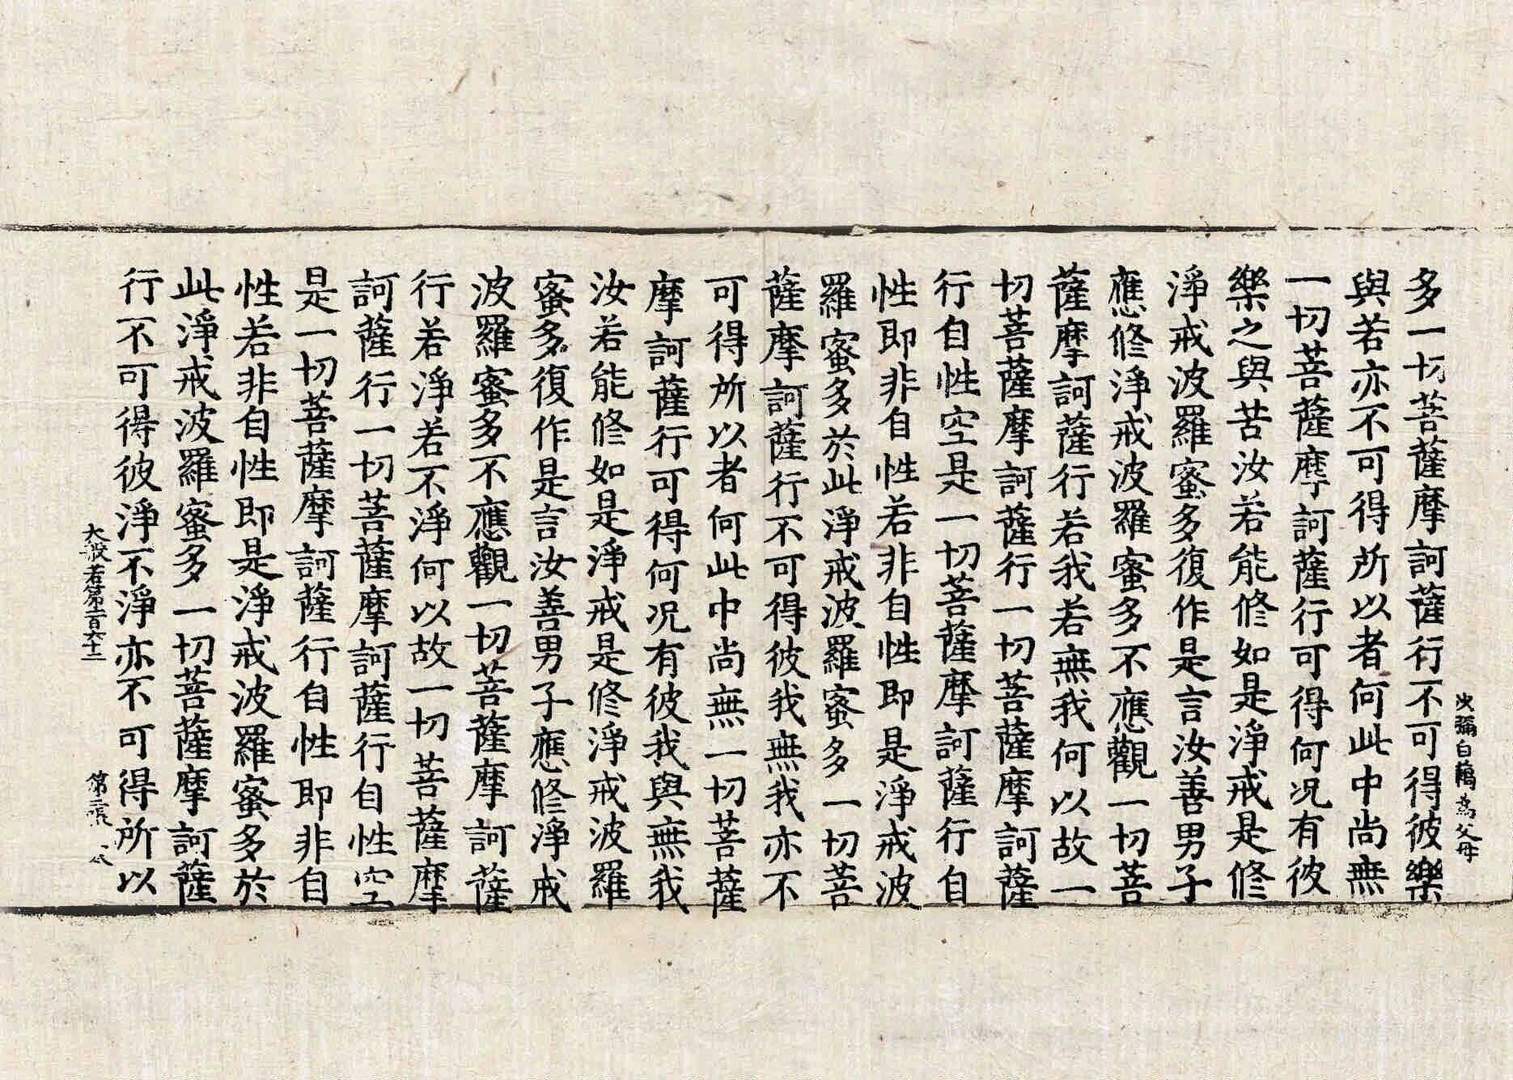 為父母
多一切菩薩摩訶薩行不可得彼樂
與若亦不可得所以者何此中尚無
一切菩薩摩訶薩行可得何况有彼
樂之與苦汝若能修如是淨戒是修
淨戒波羅蜜多復作是言汝善男子
應修淨戒波羅蜜多不應觀一切菩
薩摩訶薩行若我若無我何以故一
切菩薩摩訶薩行一切菩薩摩訶薩
行自性空是一切菩薩摩訶薩行自
性即非自性若非自性即是淨戒波
羅蜜多於此淨戒波羅蜜多一切菩
薩摩訶薩行不可得彼我無我亦不
可得所以者何此中尚無一切菩薩
摩訶薩行可得何况有彼我與無我
汝若能修如是淨戒是修淨戒波羅
蜜多復作是言汝善男子應修淨戒
波羅蜜多不應觀一切菩薩摩訶薩
行若淨若不淨何以故一切菩薩摩
訶薩行一切菩薩摩訶薩行自性空
是一切菩薩摩訶薩行自性即非自
性若非自性即是淨戒波羅蜜多於
此淨戒波羅蜜多一切菩薩摩訶薩
行不可得彼淨不淨亦不可得所以
大般若第一百六十二 第二張